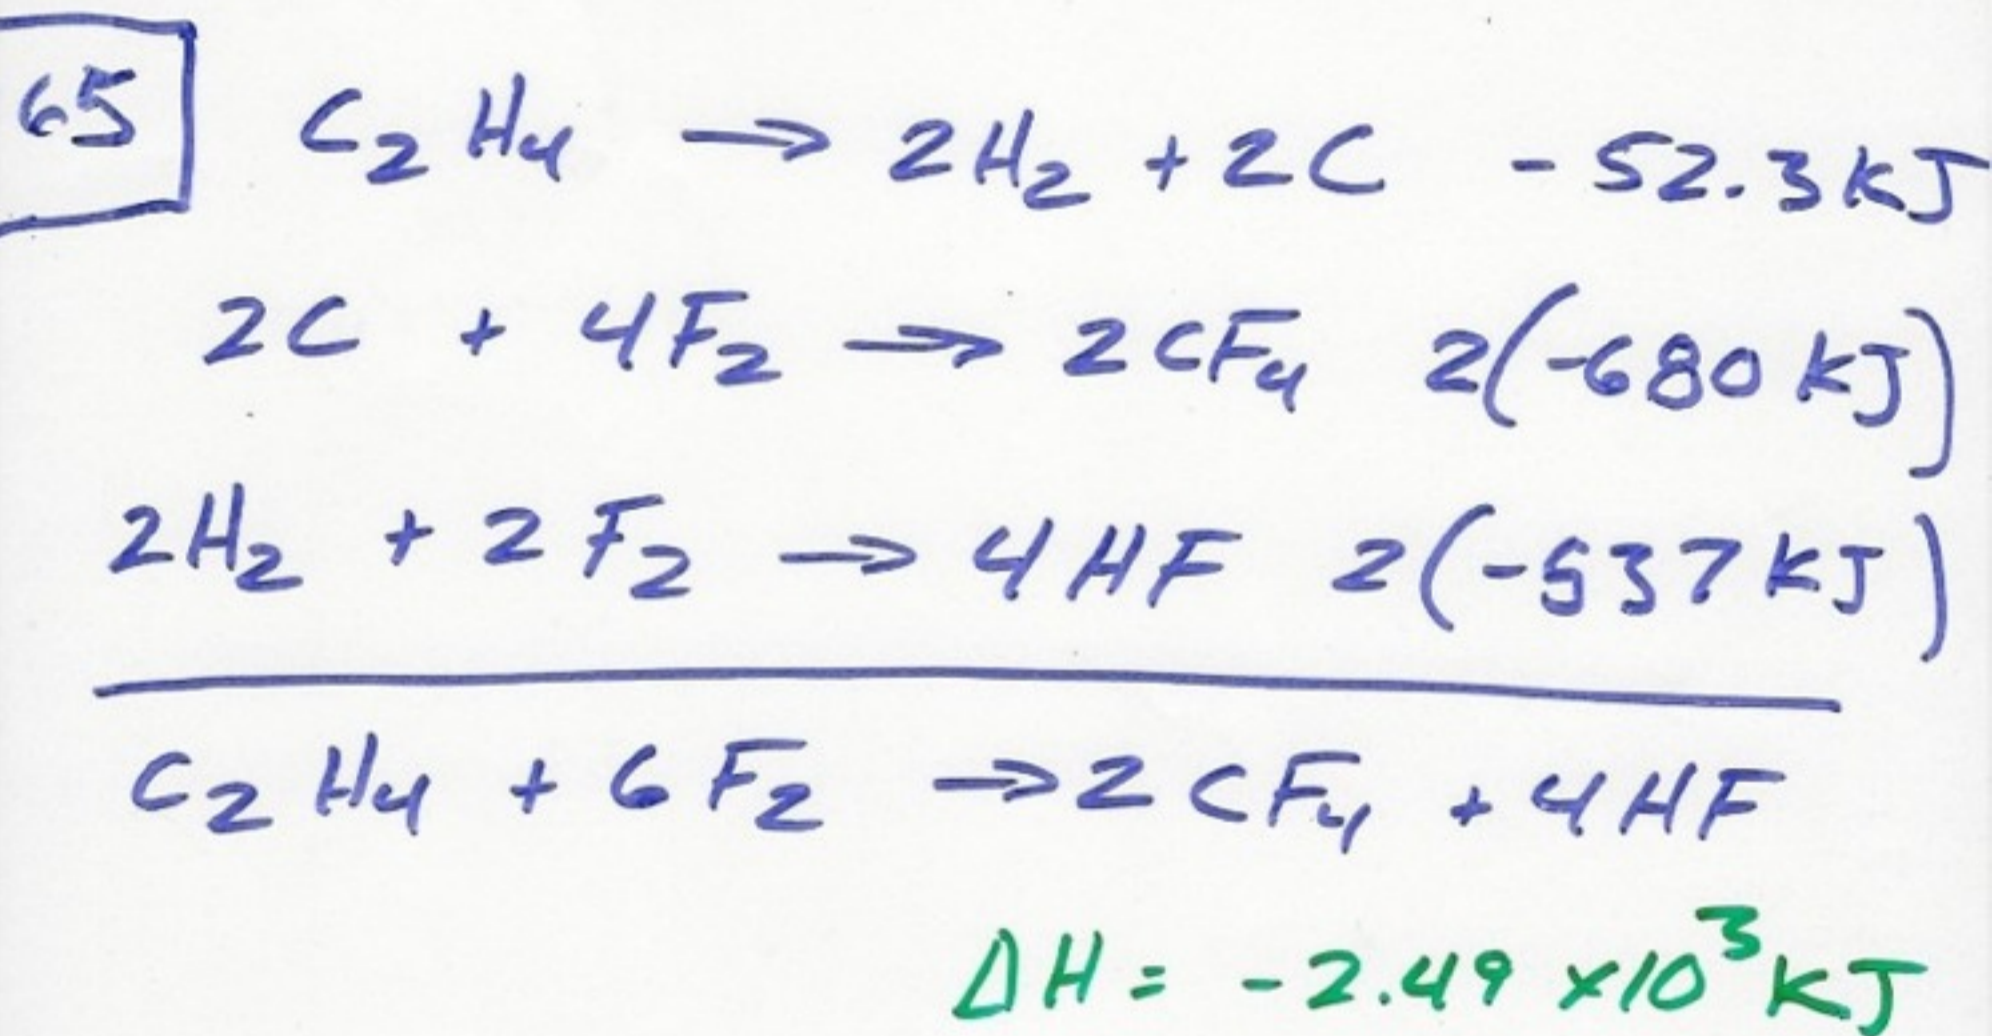 65 C₂H₄ → 2H₂ + 2C - 52.3 kJ
2C + 4F₂ → 2CF₄ 2(-680 kJ)
2H₂ + 2F₂ → 4HF 2(-537 kJ)
C₂H₄ + 6F₂ → 2CF₄ + 4HF
ΔH = -2.49 x10³ kJ